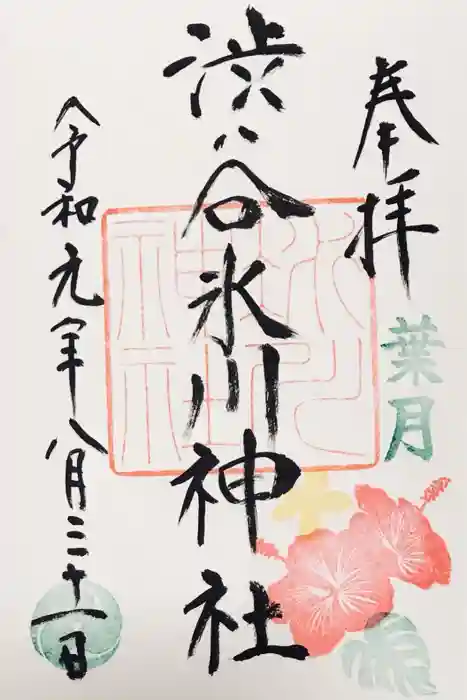 奉拝
葉月
渋谷氷川神社
令和元年八月三十一日